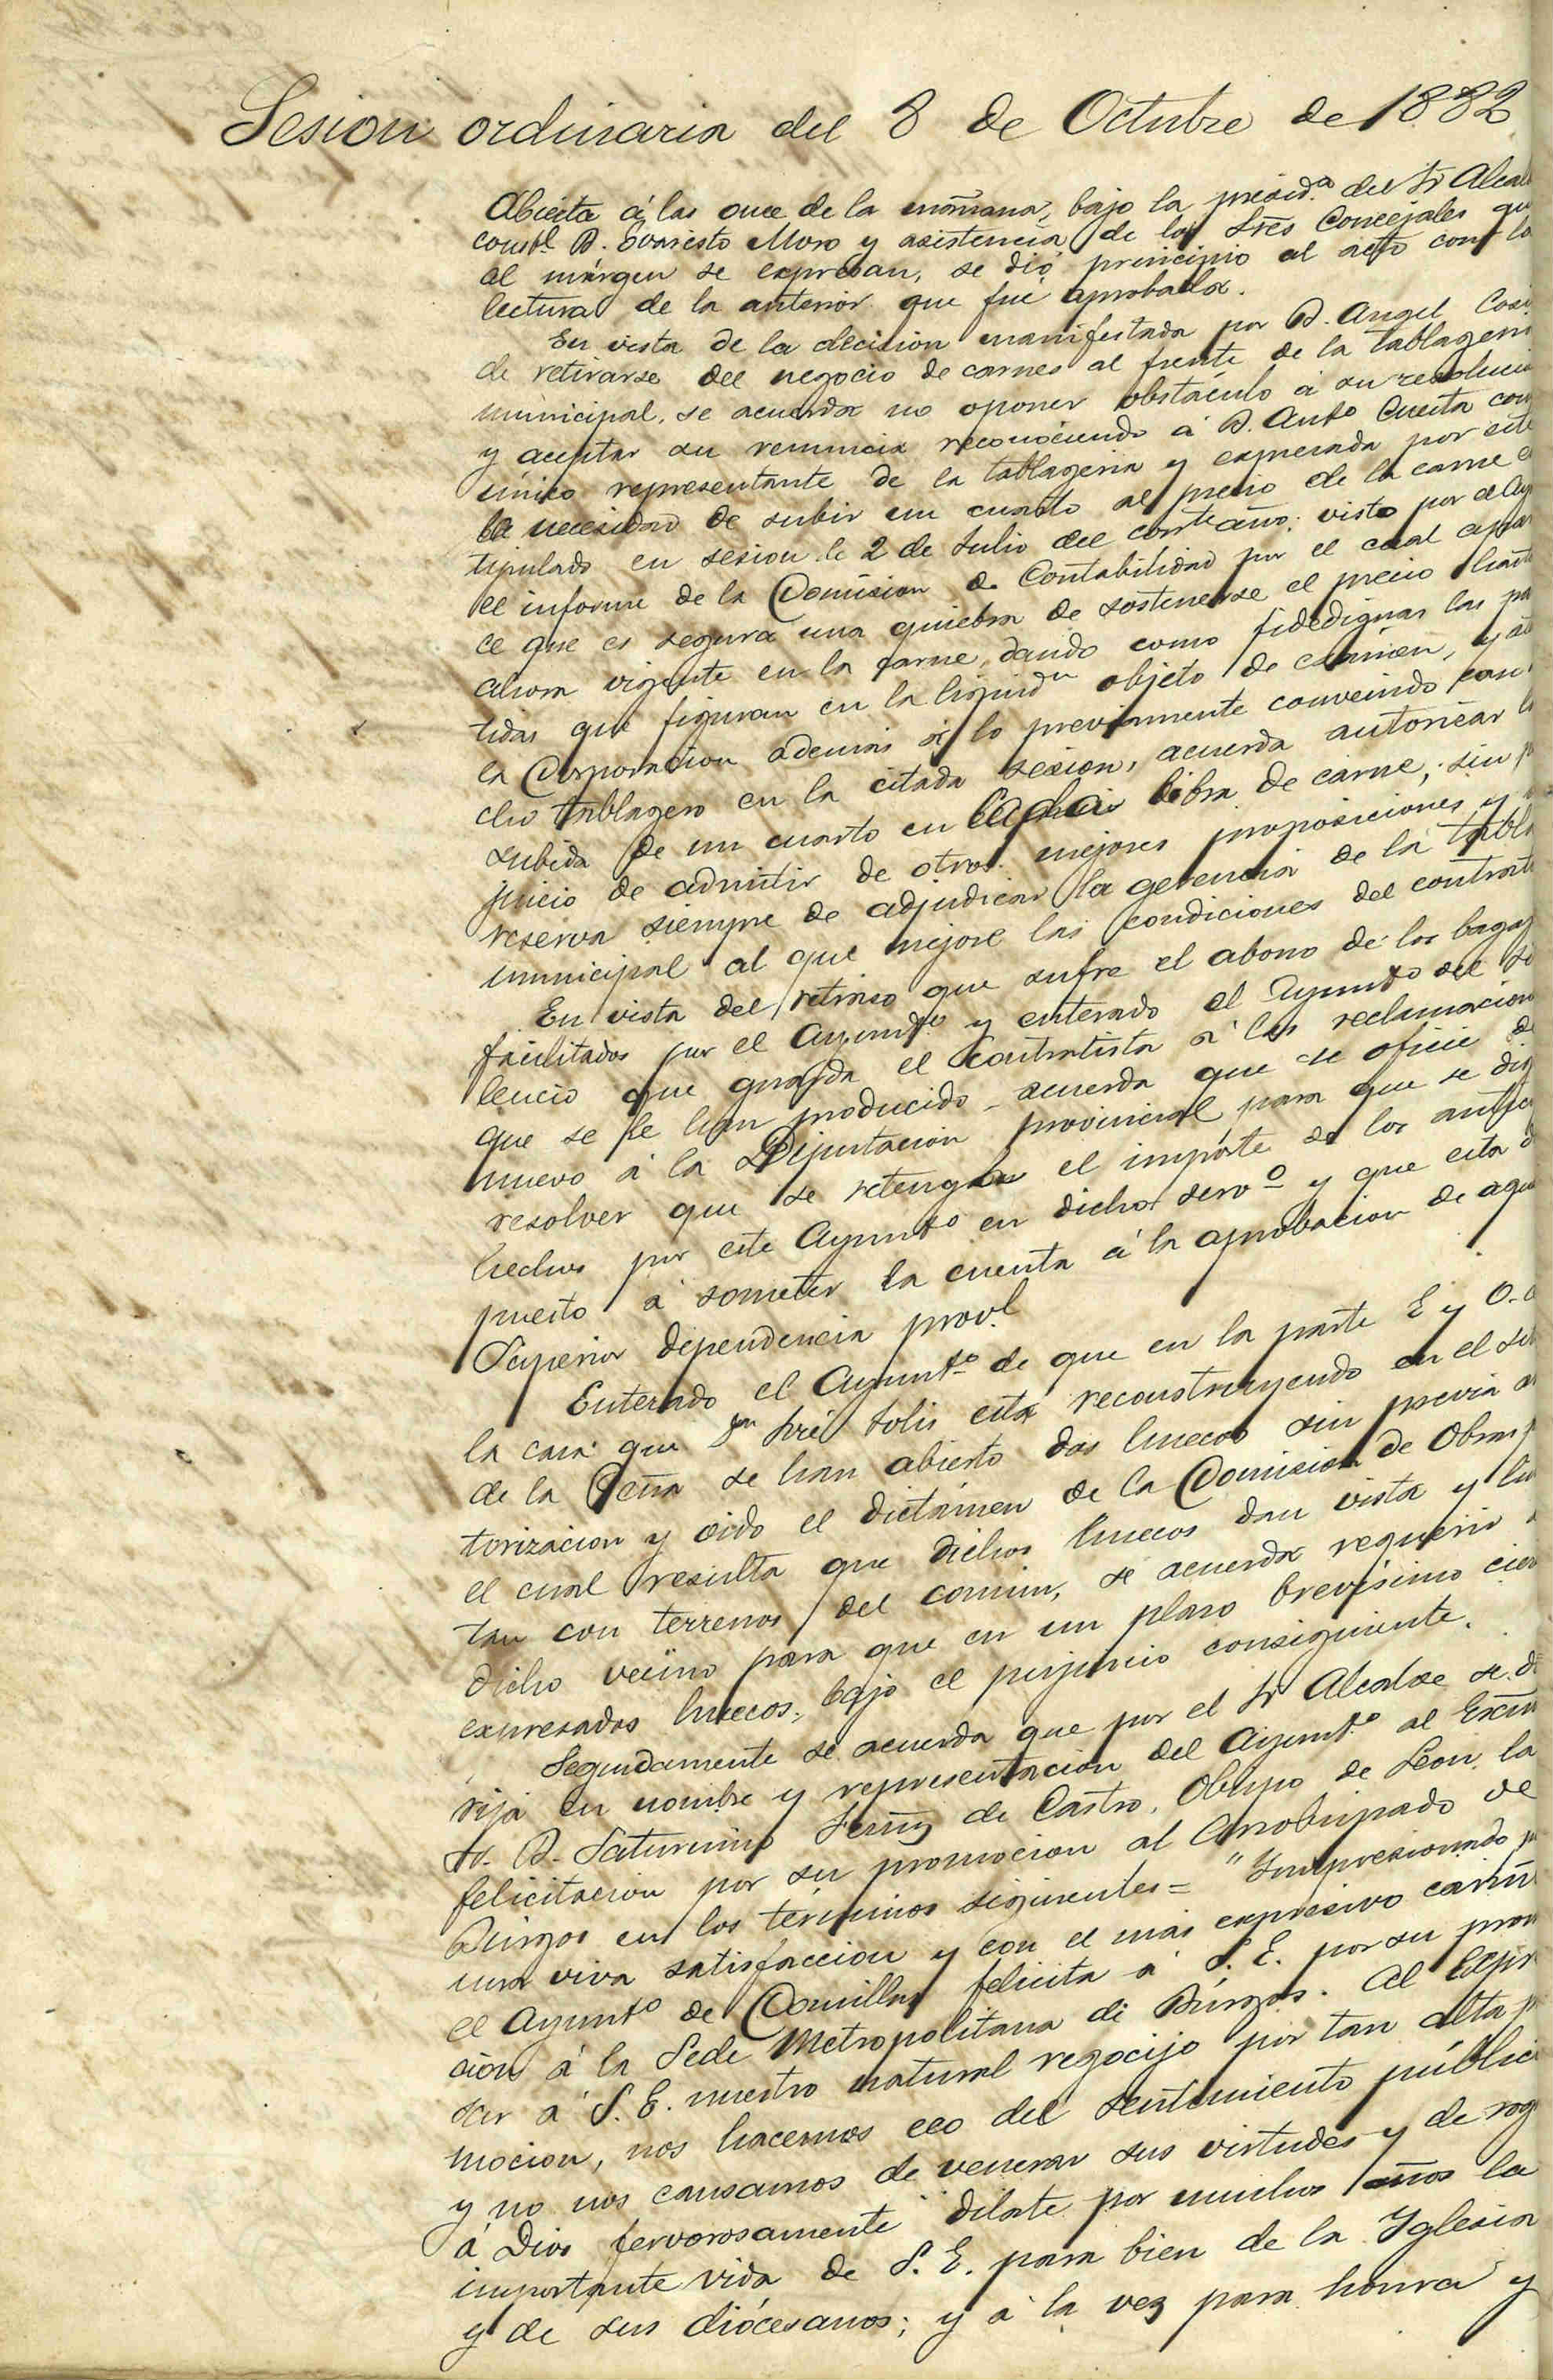 Sesion ordinaria del 8 de Octubre de 1882
Abierta á las once de la mañana, bajo la presid.ª del Sr Alcal
constl D. Evaristo Moro y asistencia de los Sres Concejales qu
al márgen se expresan, se dió principio al acto con la
lectura de la anterior que fué aprobada.
En vista de la decision manifestada por D. Angel
de retirarse del negocio de carnes al frente de la tablageri
municipal, se acuerda no oponer obstáculo á su resolucio
y aceptar su renuncia reconociendo á D. Antº Cuesta com
único representante de la tablageria y expresada por este
la necesidad de subir un cuarto al precio de la carne e
tipulado en sesion de 2 de Julio del corrte año; visto por el Ay
el informe de la Comision de Contabilidad por el cual apar
ce que es segura una quiebra de sostenerse el precio hasta
ahora vigente en la carne, dando como fidedignas las par
tidas que figuran en la liquidn objeto de exámen, y at
la Corporacion ademas á lo previamente convenido con
cho tablagero en la citada sesion, acuerda autorizar la
subida de un cuarto en cada libra de carne, sin p
juicio de admitir de otros mejores proposiciones y
reserva siempre de adjudicar la gerencia de la tabla
municipal al que mejore las condiciones del contrat
En vista del retraso que sufre el abono de los bagag
facilitados por el Ayuntº y enterado el Ayuntº del si
lencio que guarda el Contratista á las reclamacion
que se le han producido acuerda que se oficie de
nuevo á la Diputacion provincial para que se dig
resolver que se retenga el importe de los antic
hechos por este Ayuntº en dicho servº y que esta
puesto á someter la cuenta á la aprobacion de aque
Superior dependencia provl
Enterado el Ayuntº de que en la parte E y O. d
la casa que Dn José Solis está reconstruyendo en el sit
de la Peña se han abierto dos huecos sin previa au
torizacion y oido el dictámen de la Comision de Obras p
el cual resulta que dichos huecos dan vista y lin
tan con terrenos del comun, se acuerda requerir a
dicho vecino para que en un plazo brevísimo cier
expresados huecos, bajo el perjuicio consiguiente.
Seguidamente se acuerda que por el Sr Alcalde se di
rija en nombre y representacion del Ayuntº al Excmo
Sr. D. Saturnino Fernz de Castro, Obispo de Leon, la
felicitacion por su promocion al Arzobispado de
Búrgos en los términos siguientes= "Impresionado p
una viva satisfaccion y con el más expresivo cariñ
el Ayuntº de Comillas felicita á S. E. por su prom
cion á la Sede Metropolitana de Búrgos. Al expre
sar á S. E. nuestro natural regocijo por tan alta p
mocion, nos hacemos eco del sentimiento público
y no nos cansamos de venerar sus virtudes y de rog
á Dios fervorosamente dilate por muchos años la
importante vida de S. E. para bien de la Iglesia
y de sus diócesanos; y á la vez para honra y